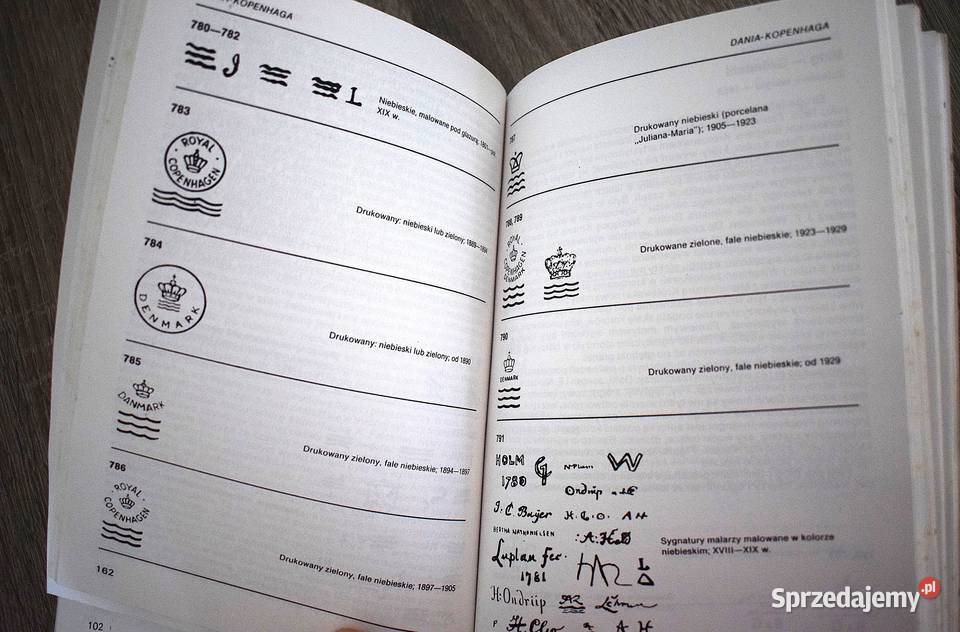 KOPENHAGA
780—782
J
L
Niebieskie, malowane pod glazurą;
XIX w.
783
ROYAL
COPENHAGEN
Drukowany: niebieski lub zielony; 1889—1894
784
DENMARK
Drukowany: niebieski lub zielony; od 1890
785
DANMARK
Drukowany zielony, fale niebieskie; 1894—1897
786
ROYAL
COPENHAGEN
Drukowany zielony, fale niebieskie; 1897—1905
162
102
DANIA-KOPENHAGA
787
Drukowany niebieski (porcelana
„Juliana-Maria"); 1905—1923
788, 789
ROYAL
COPENHAGEN
DENMARK
Drukowane zielone, fale niebieskie; 1923—1929
790
DENMARK
Drukowany zielony, fale niebieskie; od 1929
791
HOLM
1780
W
Ondrup
J. C. Bayer
H. C. O. A H
BERTHA NATHANIELSEN
Luplau fec.
1781
L
Sygnatury malarzy malowane w kolorze
niebieskim; XVIII—XIX w.
H: Ondrüp
A H
Sprzedajemy.pl